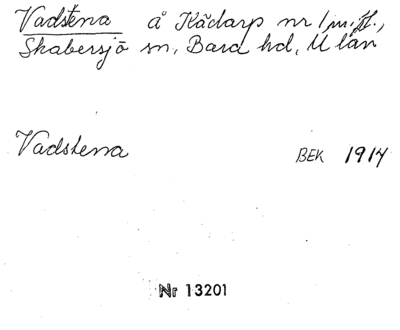 Vadstena å Kädarp nr 1 m.fl.,
Skabersjö sn, Bara hd, M län
Vadstena BEK 1914
Nr 13201